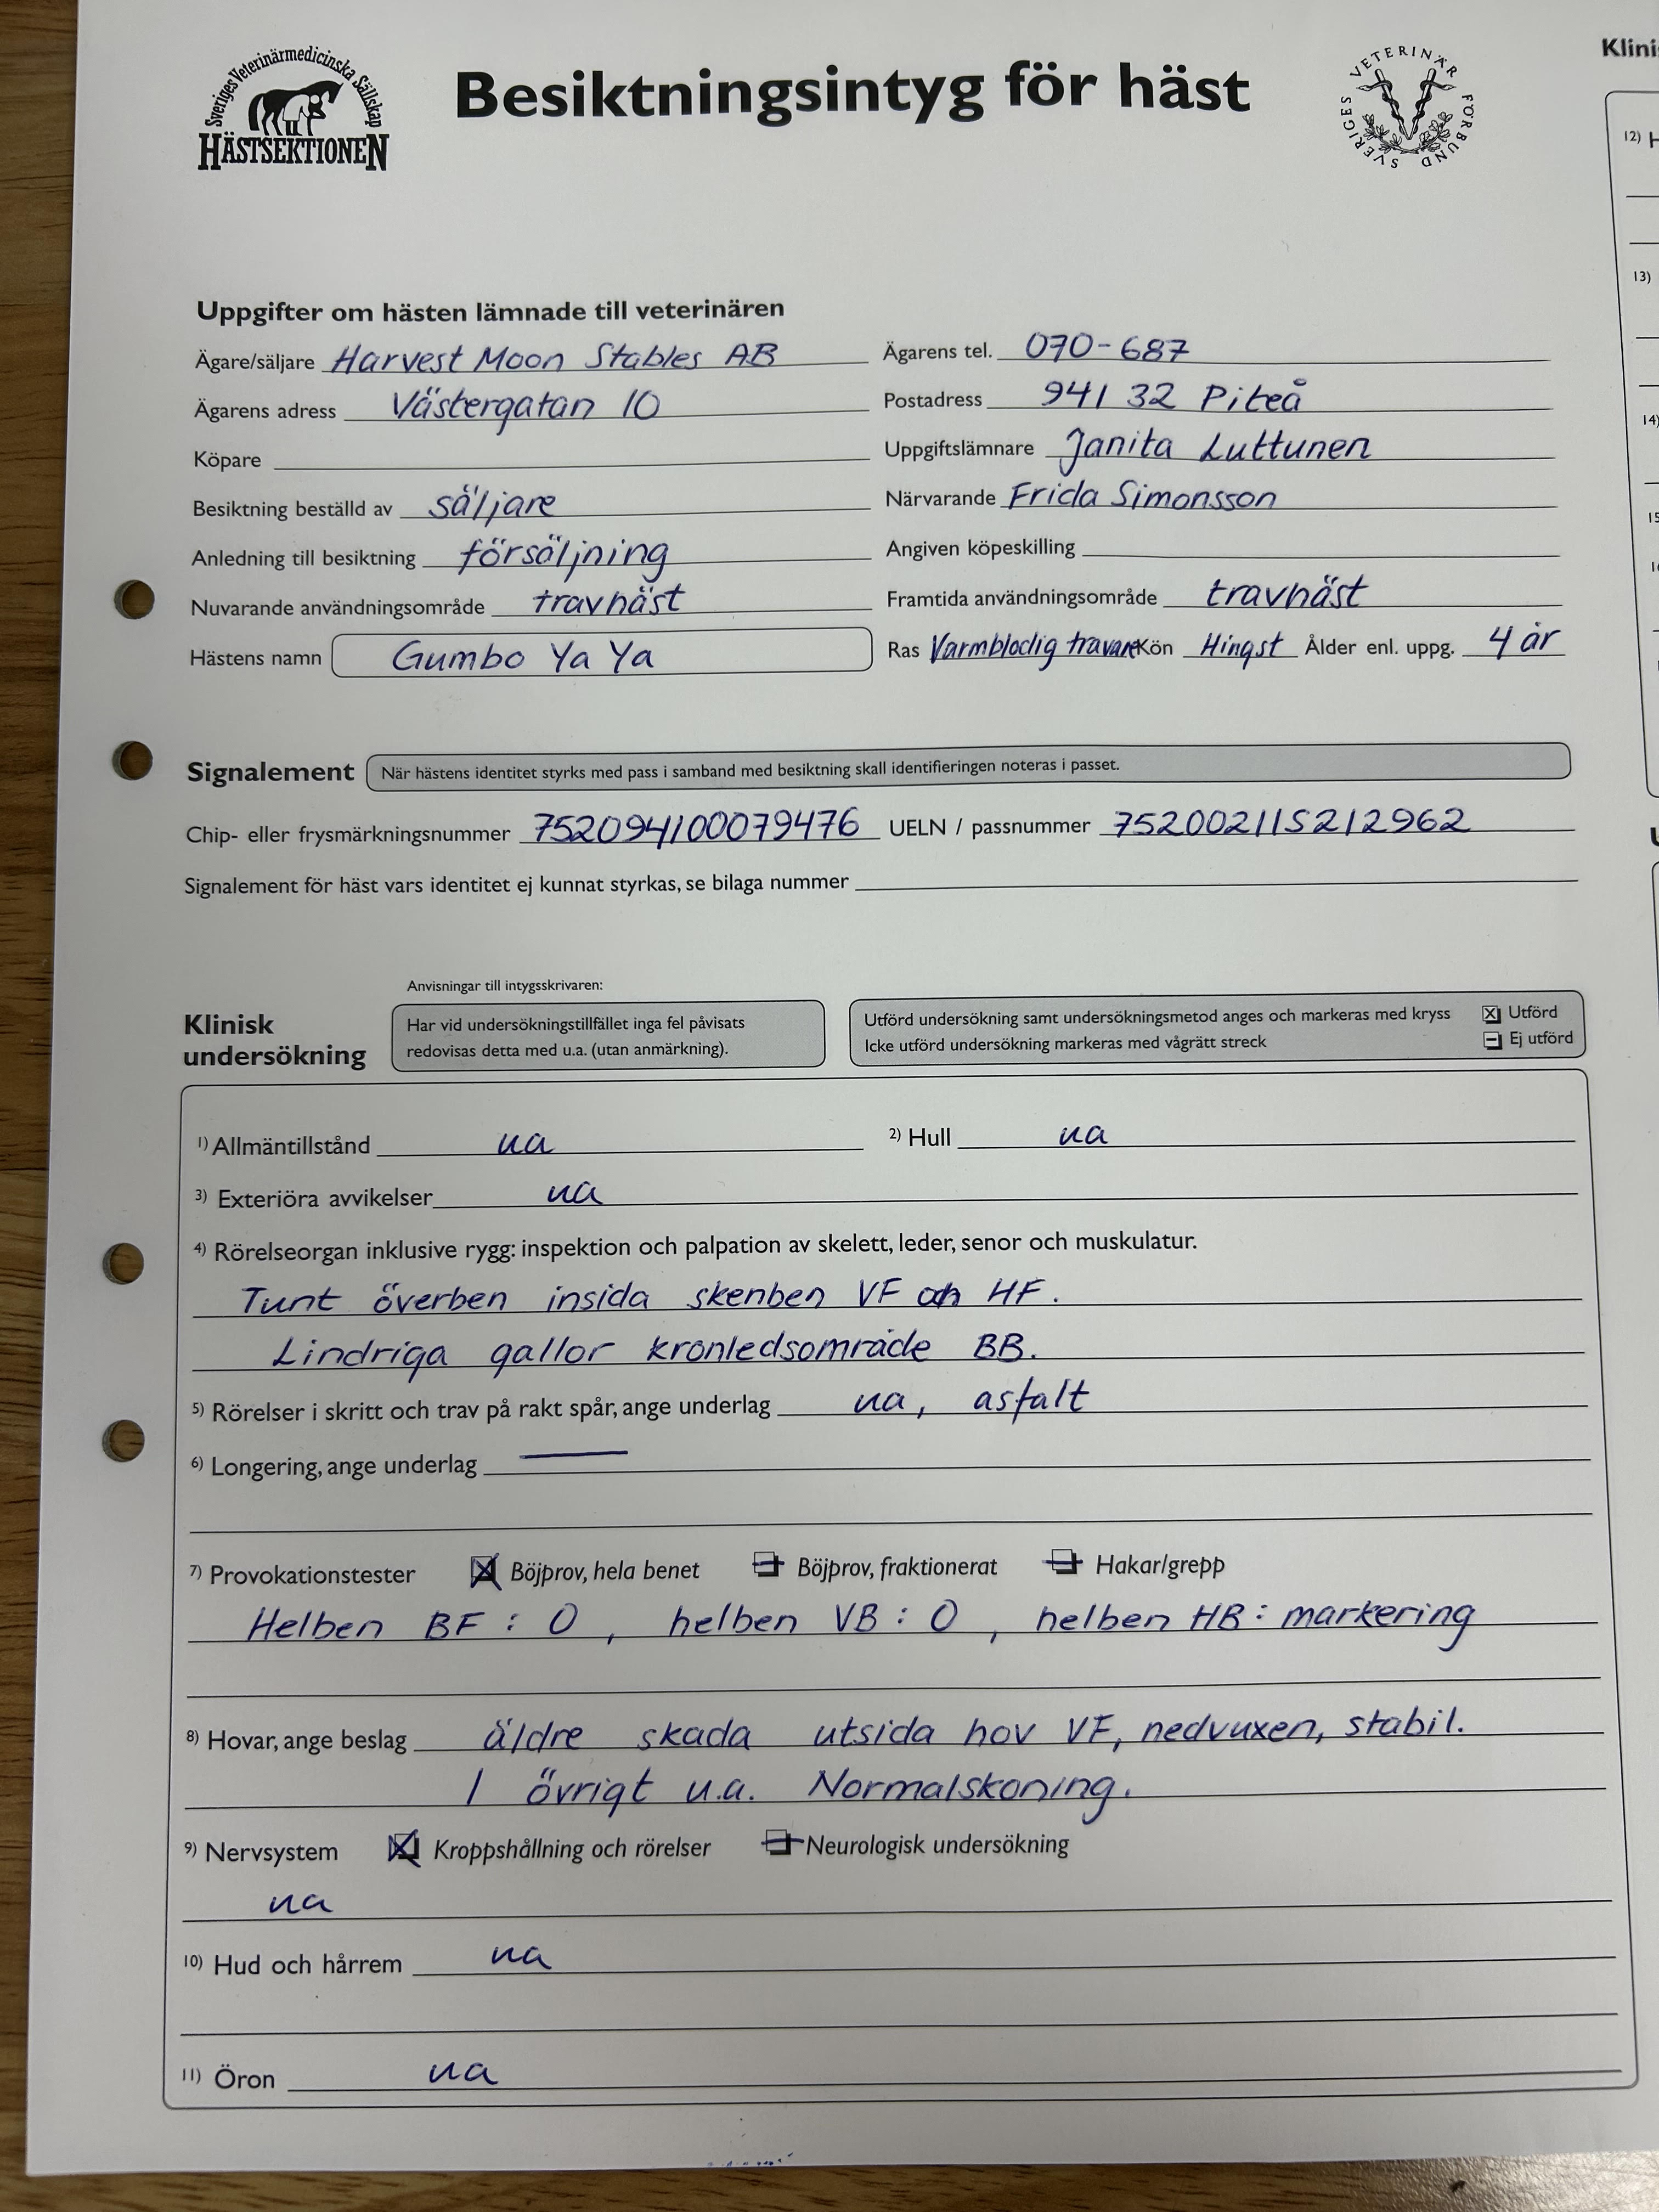 Sveriges Veterinärmedicinska Sällskap
HÄSTSEKTIONEN
Besiktningsintyg för häst
SVERIGES VETERINÄR FÖRBUND
Uppgifter om hästen lämnade till veterinären
Ägare/säljare Harvest Moon Stables AB Ägarens tel. 070-687
Ägarens adress Västergatan 10 Postadress 941 32 Piteå
Köpare Uppgiftslämnare Janita Luttunen
Besiktning beställd av säljare Närvarande Frida Simonsson
Anledning till besiktning försäljning Angiven köpeskilling
Nuvarande användningsområde travhäst Framtida användningsområde travhäst
Hästens namn Gumbo Ya Ya Ras Varmblodig travare Kön Hingst Ålder enl. uppg. 4 år
Signalement När hästens identitet styrks med pass i samband med besiktning skall identifieringen noteras i passet.
Chip- eller frysmärkningsnummer 752094100079476 UELN / passnummer 752002115212962
Signalement för häst vars identitet ej kunnat styrkas, se bilaga nummer
Anvisningar till intygsskrivaren:
Klinisk undersökning
Har vid undersökningstillfället inga fel påvisats
redovisas detta med u.a. (utan anmärkning).
Utförd undersökning samt undersökningsmetod anges och markeras med kryss Utförd
Icke utförd undersökning markeras med vågrätt streck Ej utförd
1) Allmäntillstånd ua 2) Hull ua
3) Exteriöra avvikelser ua
4) Rörelseorgan inklusive rygg: inspektion och palpation av skelett, leder, senor och muskulatur.
Tunt överben insida skenben VF och HF.
Lindriga gallor kronledsområde BB.
5) Rörelser i skritt och trav på rakt spår, ange underlag ua, asfalt
6) Longering, ange underlag —
7) Provokationstester Böjprov, hela benet Böjprov, fraktionerat Hakar/grepp
Helben BF : 0, helben VB : 0, helben HB : markering
8) Hovar, ange beslag äldre skada utsida hov VF, nedvuxen, stabil.
I övrigt u.a. Normalskoning.
9) Nervsystem Kroppshållning och rörelser Neurologisk undersökning
ua
10) Hud och hårrem ua
11) Öron ua
Klini
12) H
13)
14)